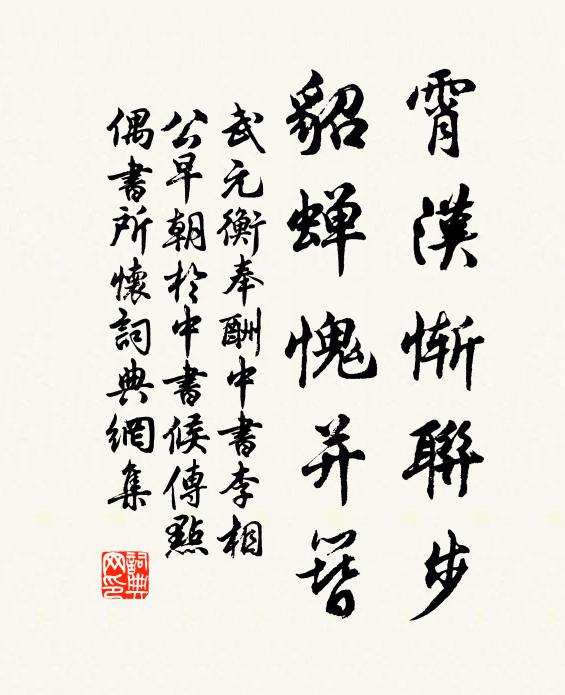 霄漢慚聯步
貂蟬愧并簪
武元衡奉酬中書李相
公早朝於中書候傳點
偶書所懷詞典網集
詞典網印